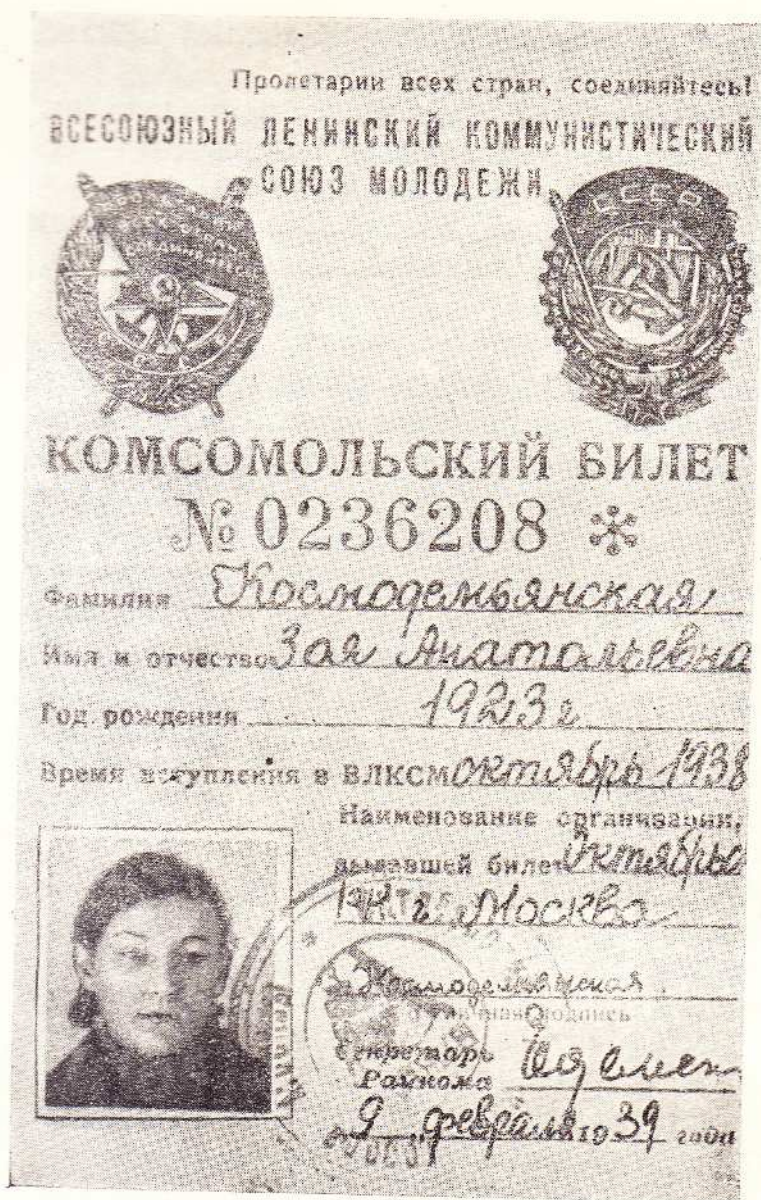 Пролетарии всех стран, соединяйтесь!
ВСЕСОЮЗНЫЙ ЛЕНИНСКИЙ КОММУНИСТИЧЕСКИЙ
СОЮЗ МОЛОДЕЖИ
СССР
КОМСОМОЛЬСКИЙ БИЛЕТ
№ 0236208
Фамилия Космодемьянская
Имя и отчество Зоя Анатольевна
Год рождения 1923 г
Время вступления в ВЛКСМ октябрь 1938
Наименование организации,
выдавшей билет Октябрь
РК г. Москва
Космодемьянская
Личная подпись
Секретарь
Райкома
9 февраля 1939 года